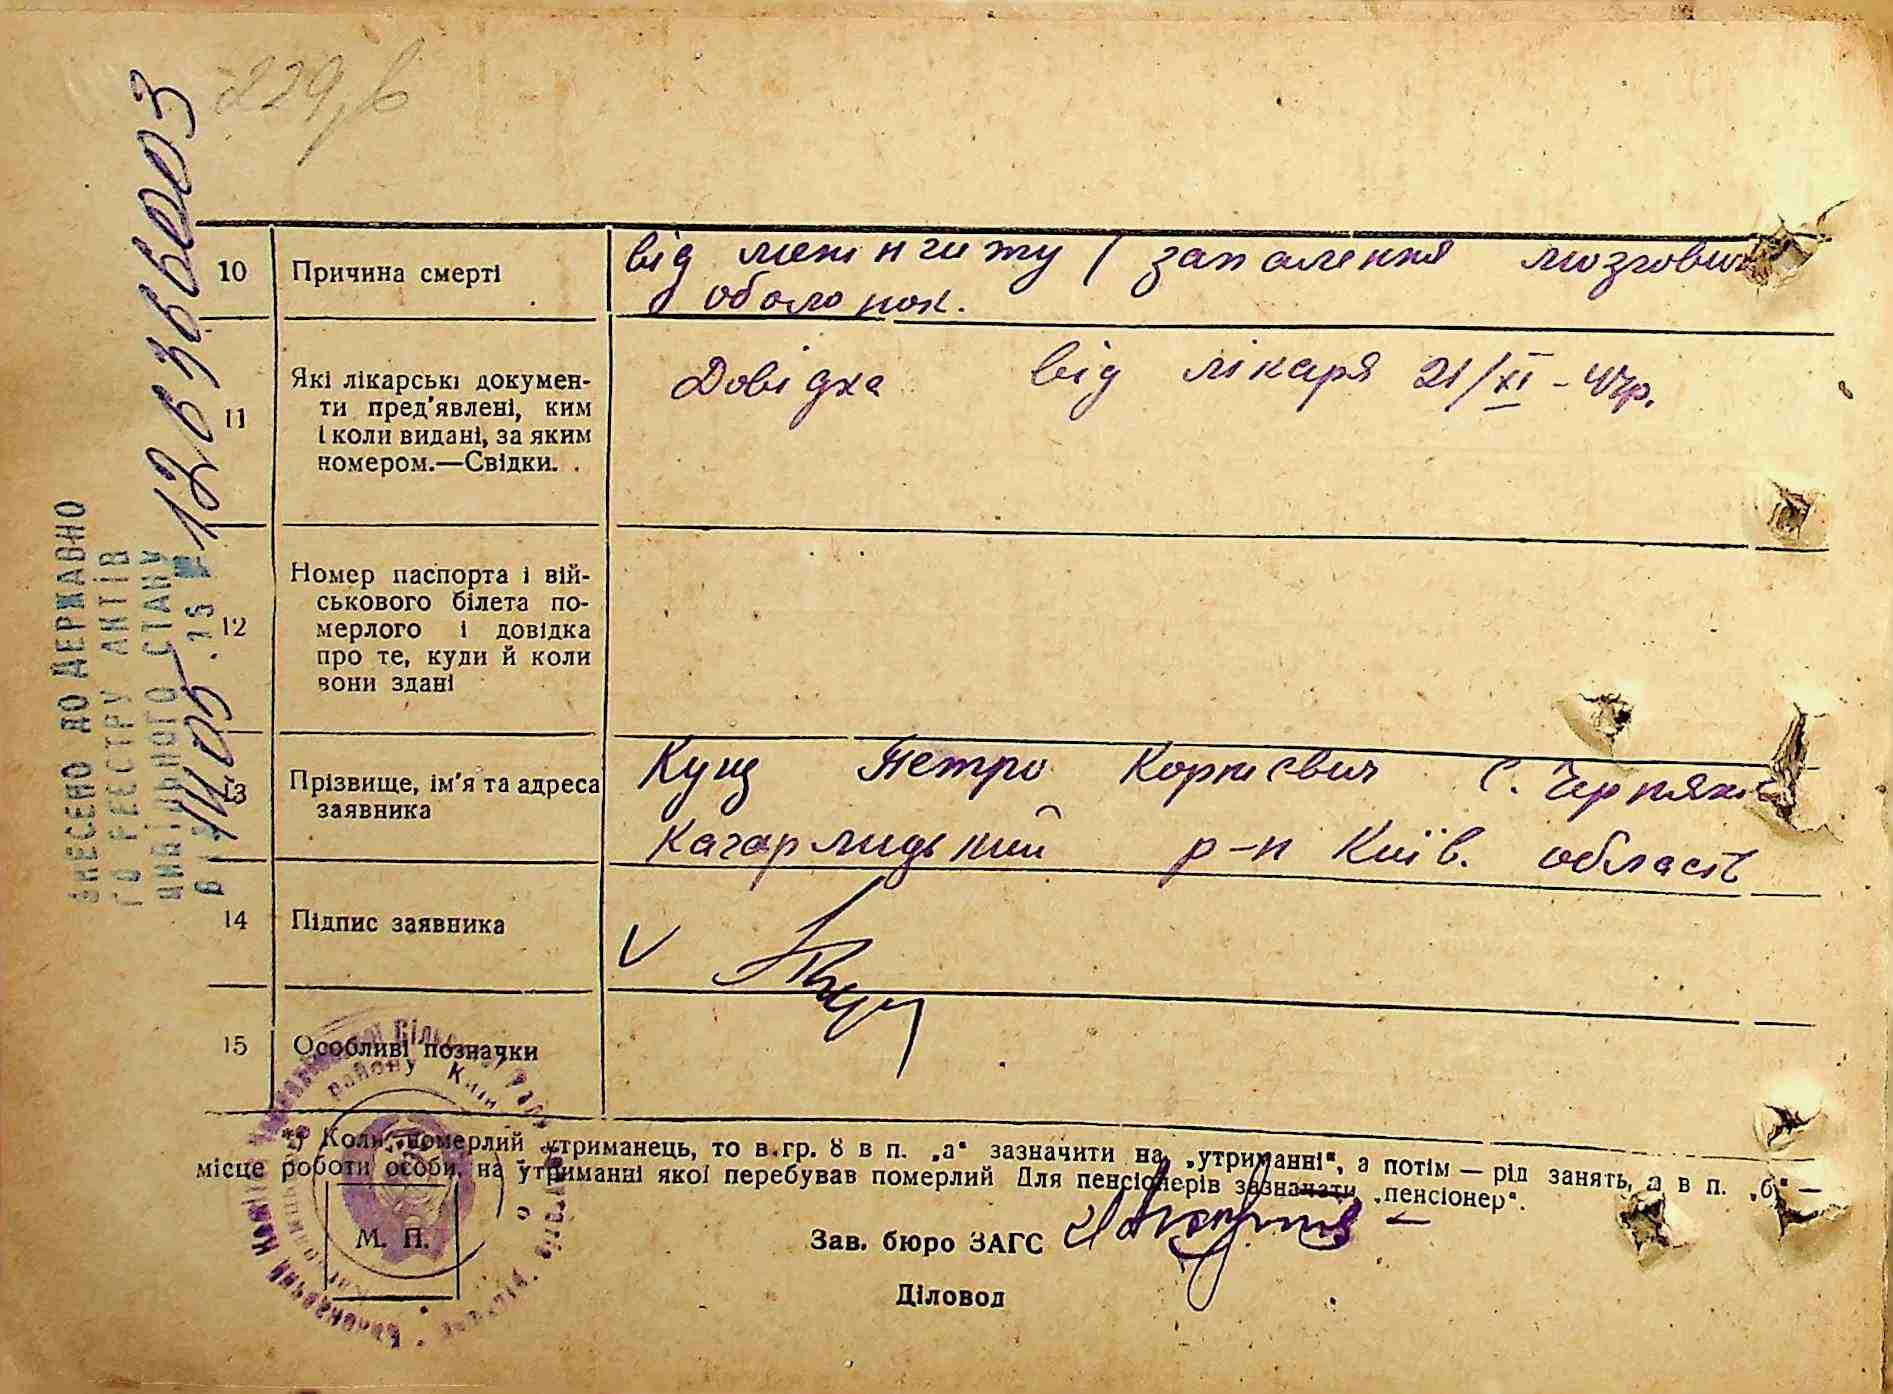 229,б
10 Причина смерті від менінгиту / запалення мозгових
оболонок.
11 Які лікарські докумен-
ти пред'явлені, ким
і коли видані, за яким
номером.—Свідки. .
Довідка від лікаря 21/XI-44р.
12 Номер паспорта і вій-
ськового білета по-
мерлого і довідка
про те, куди й коли
вони здані
13 Прізвище, ім'я та адреса
заявника
Кущ Петро Корнієвич с. Черняхів
Кагарлицький р-н Київ. область
14 Підпис заявника V
15 Особливі позначки
*) Коли померлий утриманець, то в гр. 8 в п. „а“ зазначити на „утриманні“, а потім — рід занять, а в п. „б“ —
місце роботи особи, на утриманні якої перебував померлий Для пенсіонерів зазначати „пенсіонер“.
М. П.
Зав. бюро ЗАГС
Діловод
ВНЕСЕНО ДО ДЕРЖАВНО
ГО РЕЄСТРУ АКТІВ
ЦИВІЛЬНОГО СТАНУ
району Київ